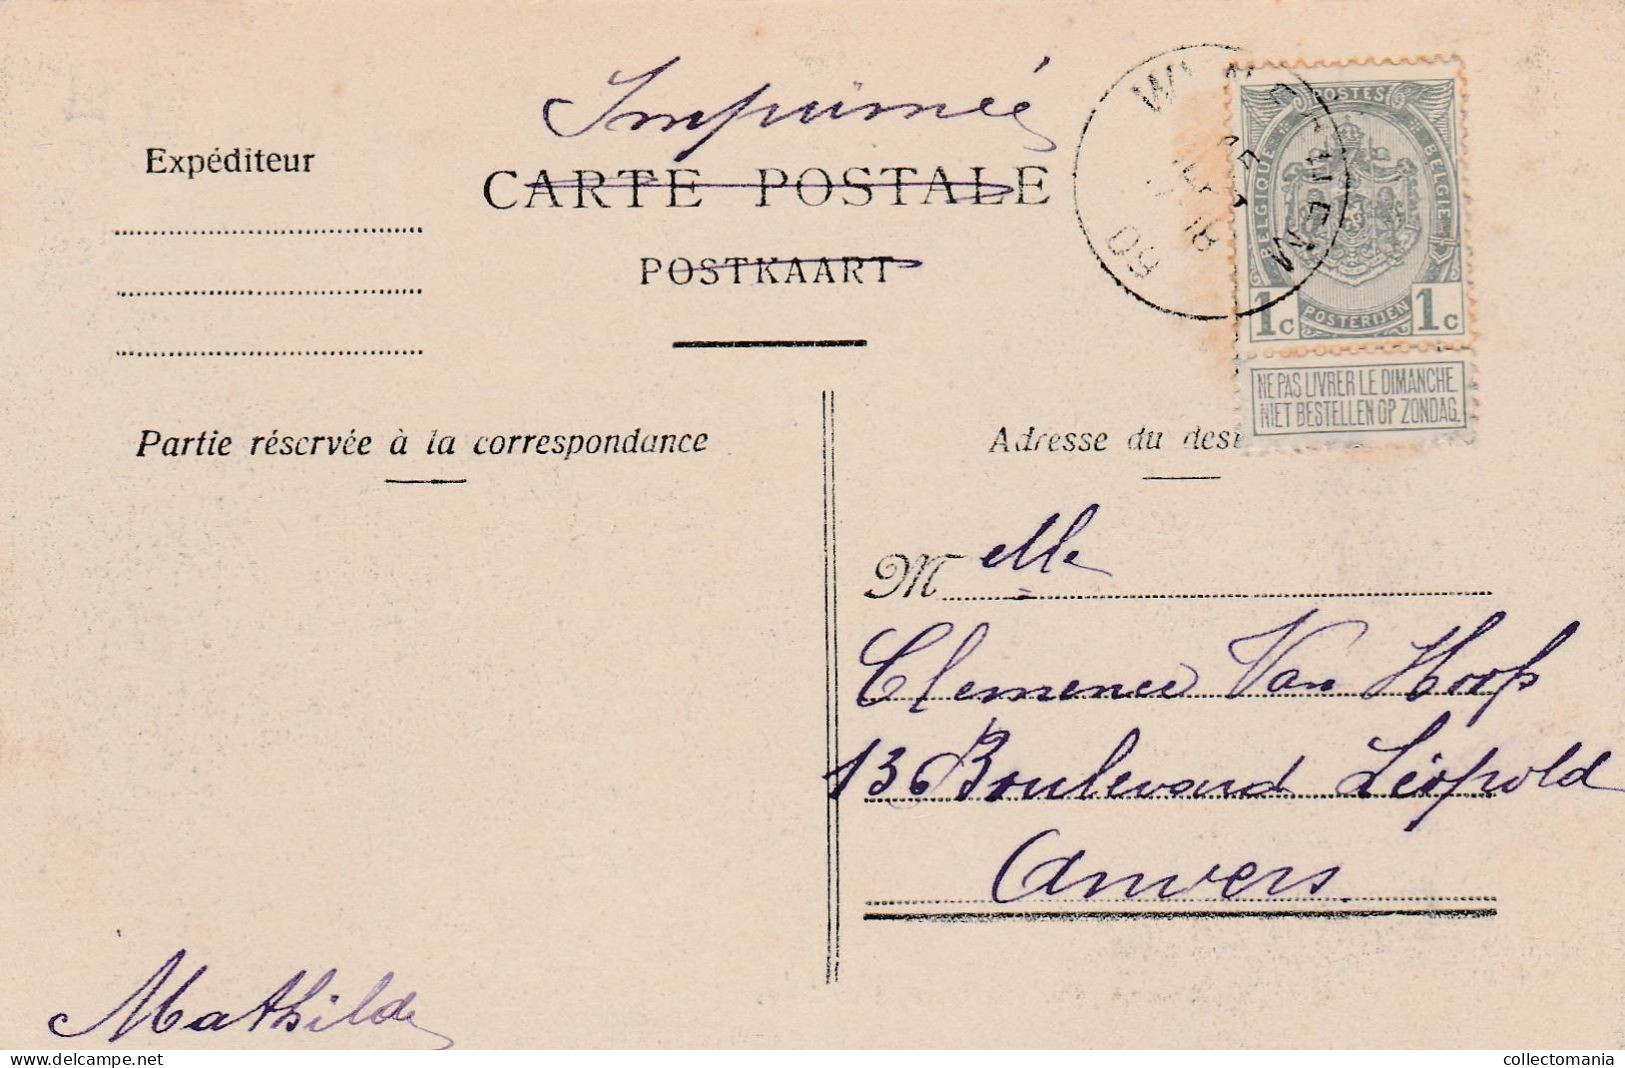 Imprimé
Expéditeur
CARTE POSTALE
POSTKAART
POSTES
BELGIQUE
BELGIE
POSTERIJEN
1c 1c
NE PAS LIVRER LE DIMANCHE
NIET BESTELLEN OP ZONDAG.
Partie réservée à la correspondance
Adresse du
M elle
Clemence Van Hoof
136 Boulevard Léopold
Anvers.
Mathilde
collectomania